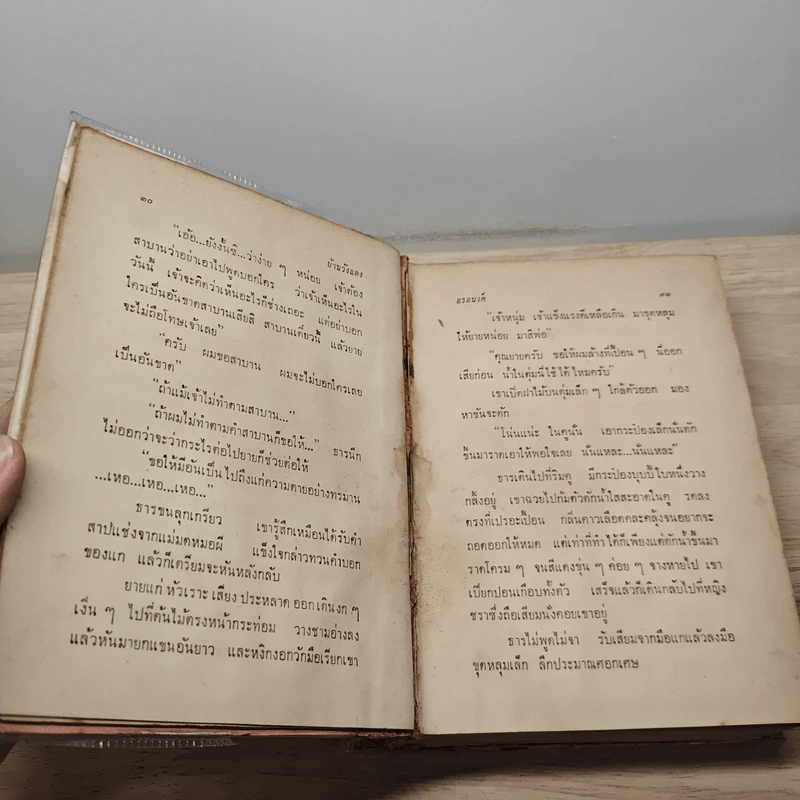 ๓๐
บ้านวังแดง
“เอ้อ...ยังงั้นซิ...ว่าง่าย ๆ หน่อย เจ้าต้อง
สาบานว่าอย่าเอาไปพูดบอกใคร ว่าเจ้าเห็นอะไรใน
วันนี้ เจ้าจะคิดว่าเห็นอะไรก็ช่างเถอะ แต่อย่าบอก
ใครเป็นอันขาดสาบานเสียสิ สาบานเดี๋ยวนี้ แล้วยาย
จะไม่ถือโทษเจ้าเลย”
“ครับ ผมขอสาบาน ผมจะไม่บอกใครเลย
เป็นอันขาด”
“ถ้าแม้เจ้าไม่ทำตามสาบาน...”
“ถ้าผมไม่ทำตามคำสาบานก็ขอให้...” ธารนึก
ไม่ออกว่าจะว่ากระไรต่อไปยายก็ช่วยต่อให้
“ขอให้มีอันเป็น ไปถึงแก่ความตายอย่างทรมาน
...เหอ...เหอ...เหอ...”
ธารขนลุกเกรียว เขารู้สึกเหมือนได้รับคำ
สาปแช่งจากแม่มดหมอผี แข็งใจกล่าวทวนคำบอก
ของแก แล้วก็เตรียมจะหันหลังกลับ
ยายแก่ หัวเราะ เสียง ประหลาด ออก เดิน งก ๆ
เงิ่น ๆ ไปที่ต้นไม้ตรงหน้ากระท่อม วางชามอ่างลง
แล้วหันมายกแขนอันยาว และหงิกงอกวักมือเรียกเขา
อรอนงค์
๓๑
“เจ้าหนุ่ม เจ้าแข็งแรงดีเหลือเกิน มาขุดหลุม
ให้ยายหน่อย มาสิพ่อ”
“คุณยายครับ ขอให้ผมล้างที่เปื้อน ๆ นี้ออก
เสียก่อน น้ำในตุ่มนี่ใช้ได้ไหมครับ”
เขาเปิดฝาไม้บนตุ่มเล็ก ๆ ใกล้ตัวออก มอง
หาขันจะตัก
“โน่นแน่ะ ในคูนั่น เอากระป๋องเล็กนั่นตัก
ขึ้นมาราดเอาให้พอใจเลย นั่นแหละ...นั่นแหละ”
ธารเดินไปที่ริมคู มีกระป๋องบุบบี้ใบหนึ่งวาง
กลิ้งอยู่ เขาฉวยไปก้มตัวตักน้ำใสสะอาดในคู รดลง
ตรงที่เปรอะเปื้อน กลิ่นคาวเลือดคละคลุ้งจนอยากจะ
ถอดออกให้หมด แต่เท่าที่ทำได้ก็เพียงแต่ตักน้ำขึ้นมา
ราดโครม ๆ จนสีแดงขุ่น ๆ ค่อย ๆ จางหายไป เขา
เปียกปอนเกือบทั้งตัว เสร็จแล้วก็เดินกลับไปที่หญิง
ชราซึ่งถือเสียมนั่งคอยเขาอยู่
ธารไม่พูดไม่จา รับเสียมจากมือแกแล้วลงมือ
ขุดหลุมเล็ก ลึกประมาณศอกเศษ